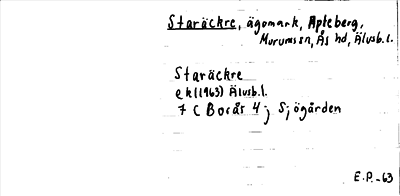 Staräckre, ägomark, Apteberg,
Murums sn, Ås hd, Älvsb.l.
Staräckre
ek (1963) Älvsb.l.
7 C Borås 4 j Sjögården
E.P.-63